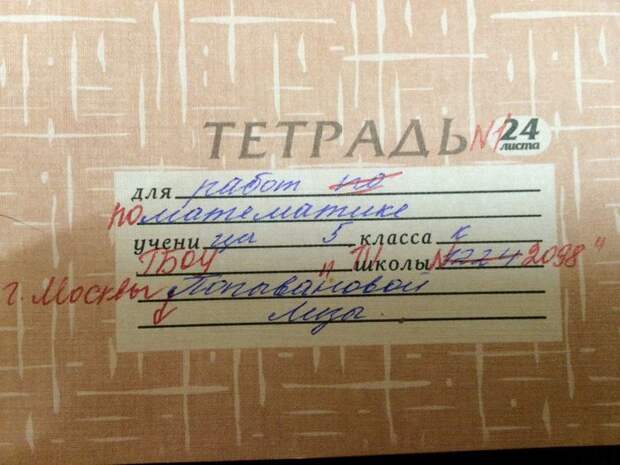 ТЕТРАДЬ №1 24 листа
для работ по
по математике
учени цы 5 класса К
ГБОУ "Школы № 1224 2098"
г. Москвы
Лизы